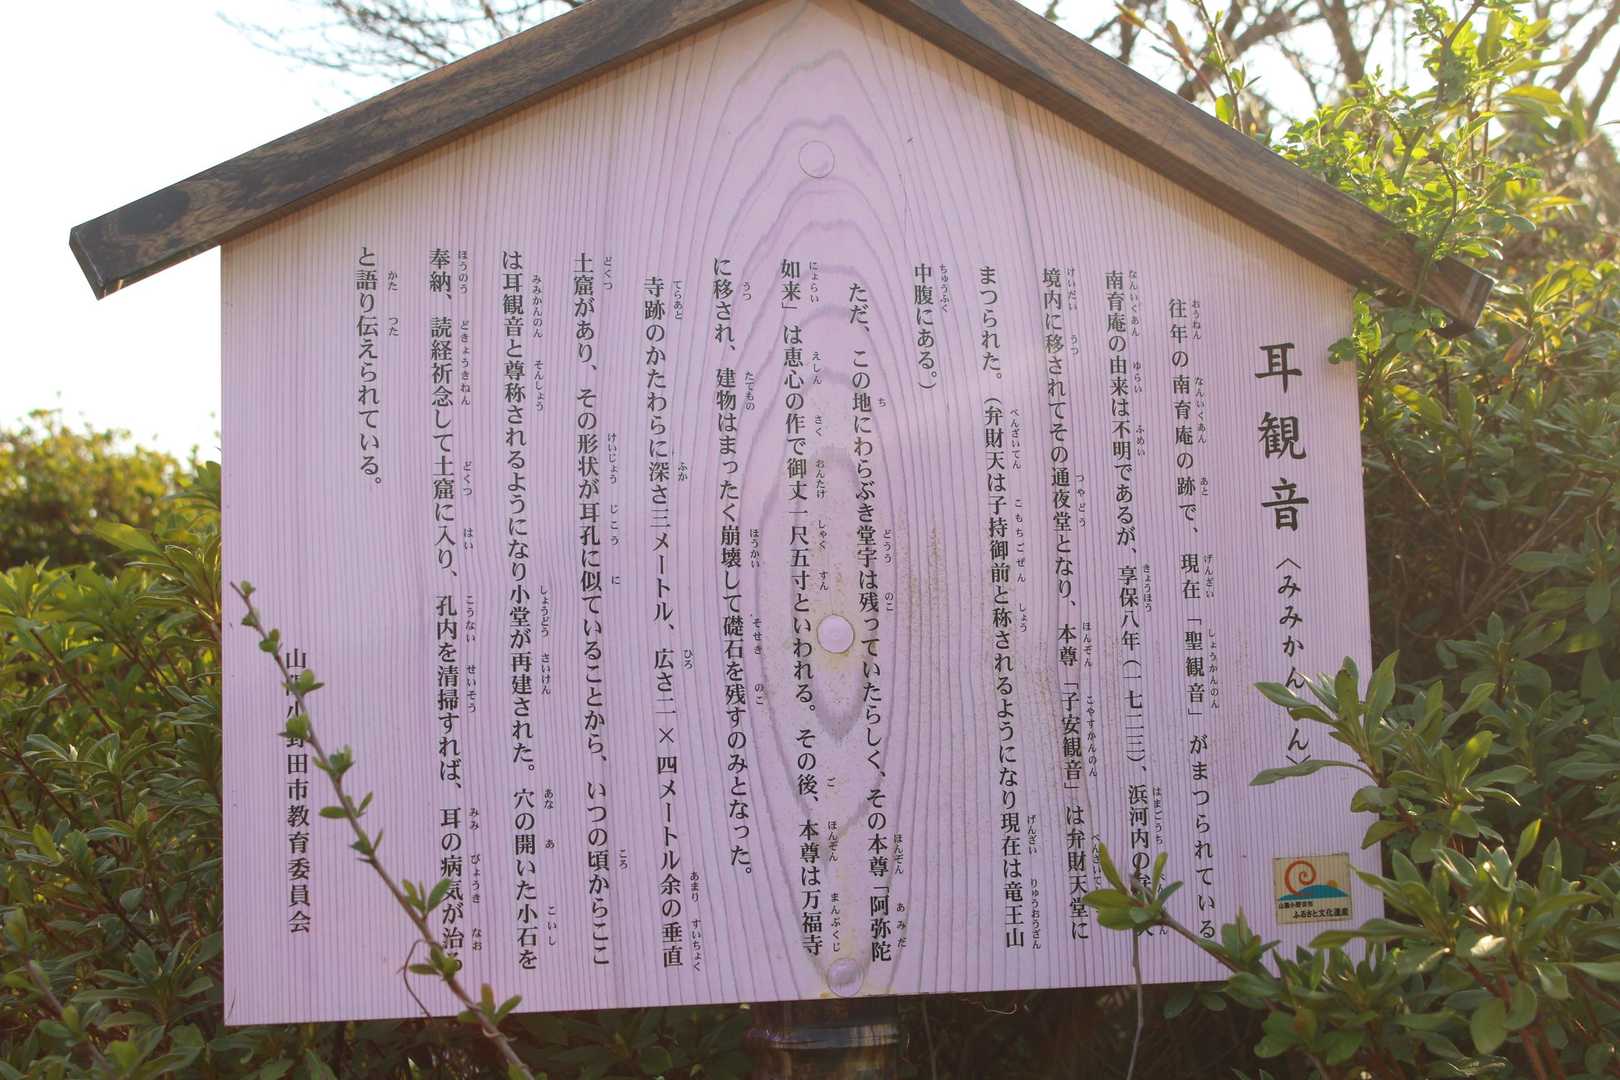 耳観音〈みみかんのん〉
往年の南育庵の跡で、現在「聖観音」がまつられている
南育庵の由来は不明であるが、享保八年(一七二三)、浜河内の
境内に移されてその通夜堂となり、本尊「子安観音」は弁財天堂に
まつられた。(弁財天は子持御前と称されるようになり現在は竜王山
中腹にある。)
ただ、この地にわらぶき堂宇は残っていたらしく、その本尊「阿弥陀
如来」は恵心の作で御丈一尺五寸といわれる。その後、本尊は万福寺
に移され、建物はまったく崩壊して礎石を残すのみとなった。
寺跡のかたわらに深さ三メートル、広さ二×四メートル余の垂直
土窟があり、その形状が耳孔に似ていることから、いつの頃からここ
は耳観音と尊称されるようになり小堂が再建された。穴の開いた小石を
奉納、読経祈念して土窟に入り、孔内を清掃すれば、耳の病気が治る
と語り伝えられている。
山陽小野田市教育委員会
山陽小野田市
ふるさと文化遺産